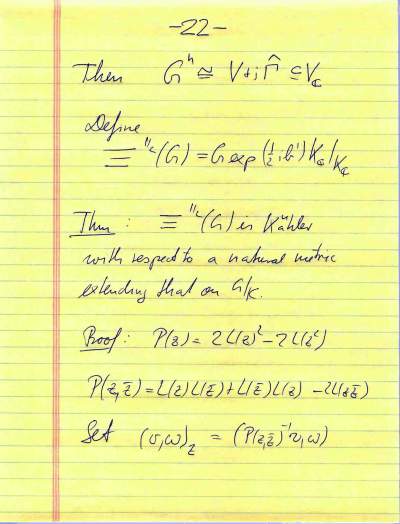 -22-
Then G^h ≅ V+iΓ̂ ⊆ V_ℂ
Define
Ξ^{1/2}(G) = G exp(½ib')K_ℂ/K_ℂ
Thm: Ξ^{1/2}(G) is Kähler
with respect to a natural metric
extending that on G/K.
Proof: P(z) = 2L(z)² - 2L(z²)
P(z,z̄) = L(z)L(z̄)+L(z̄)L(z) - 2L(zz̄)
Set (v,w)_z = (P(z,z̄)^{-1}v,w)